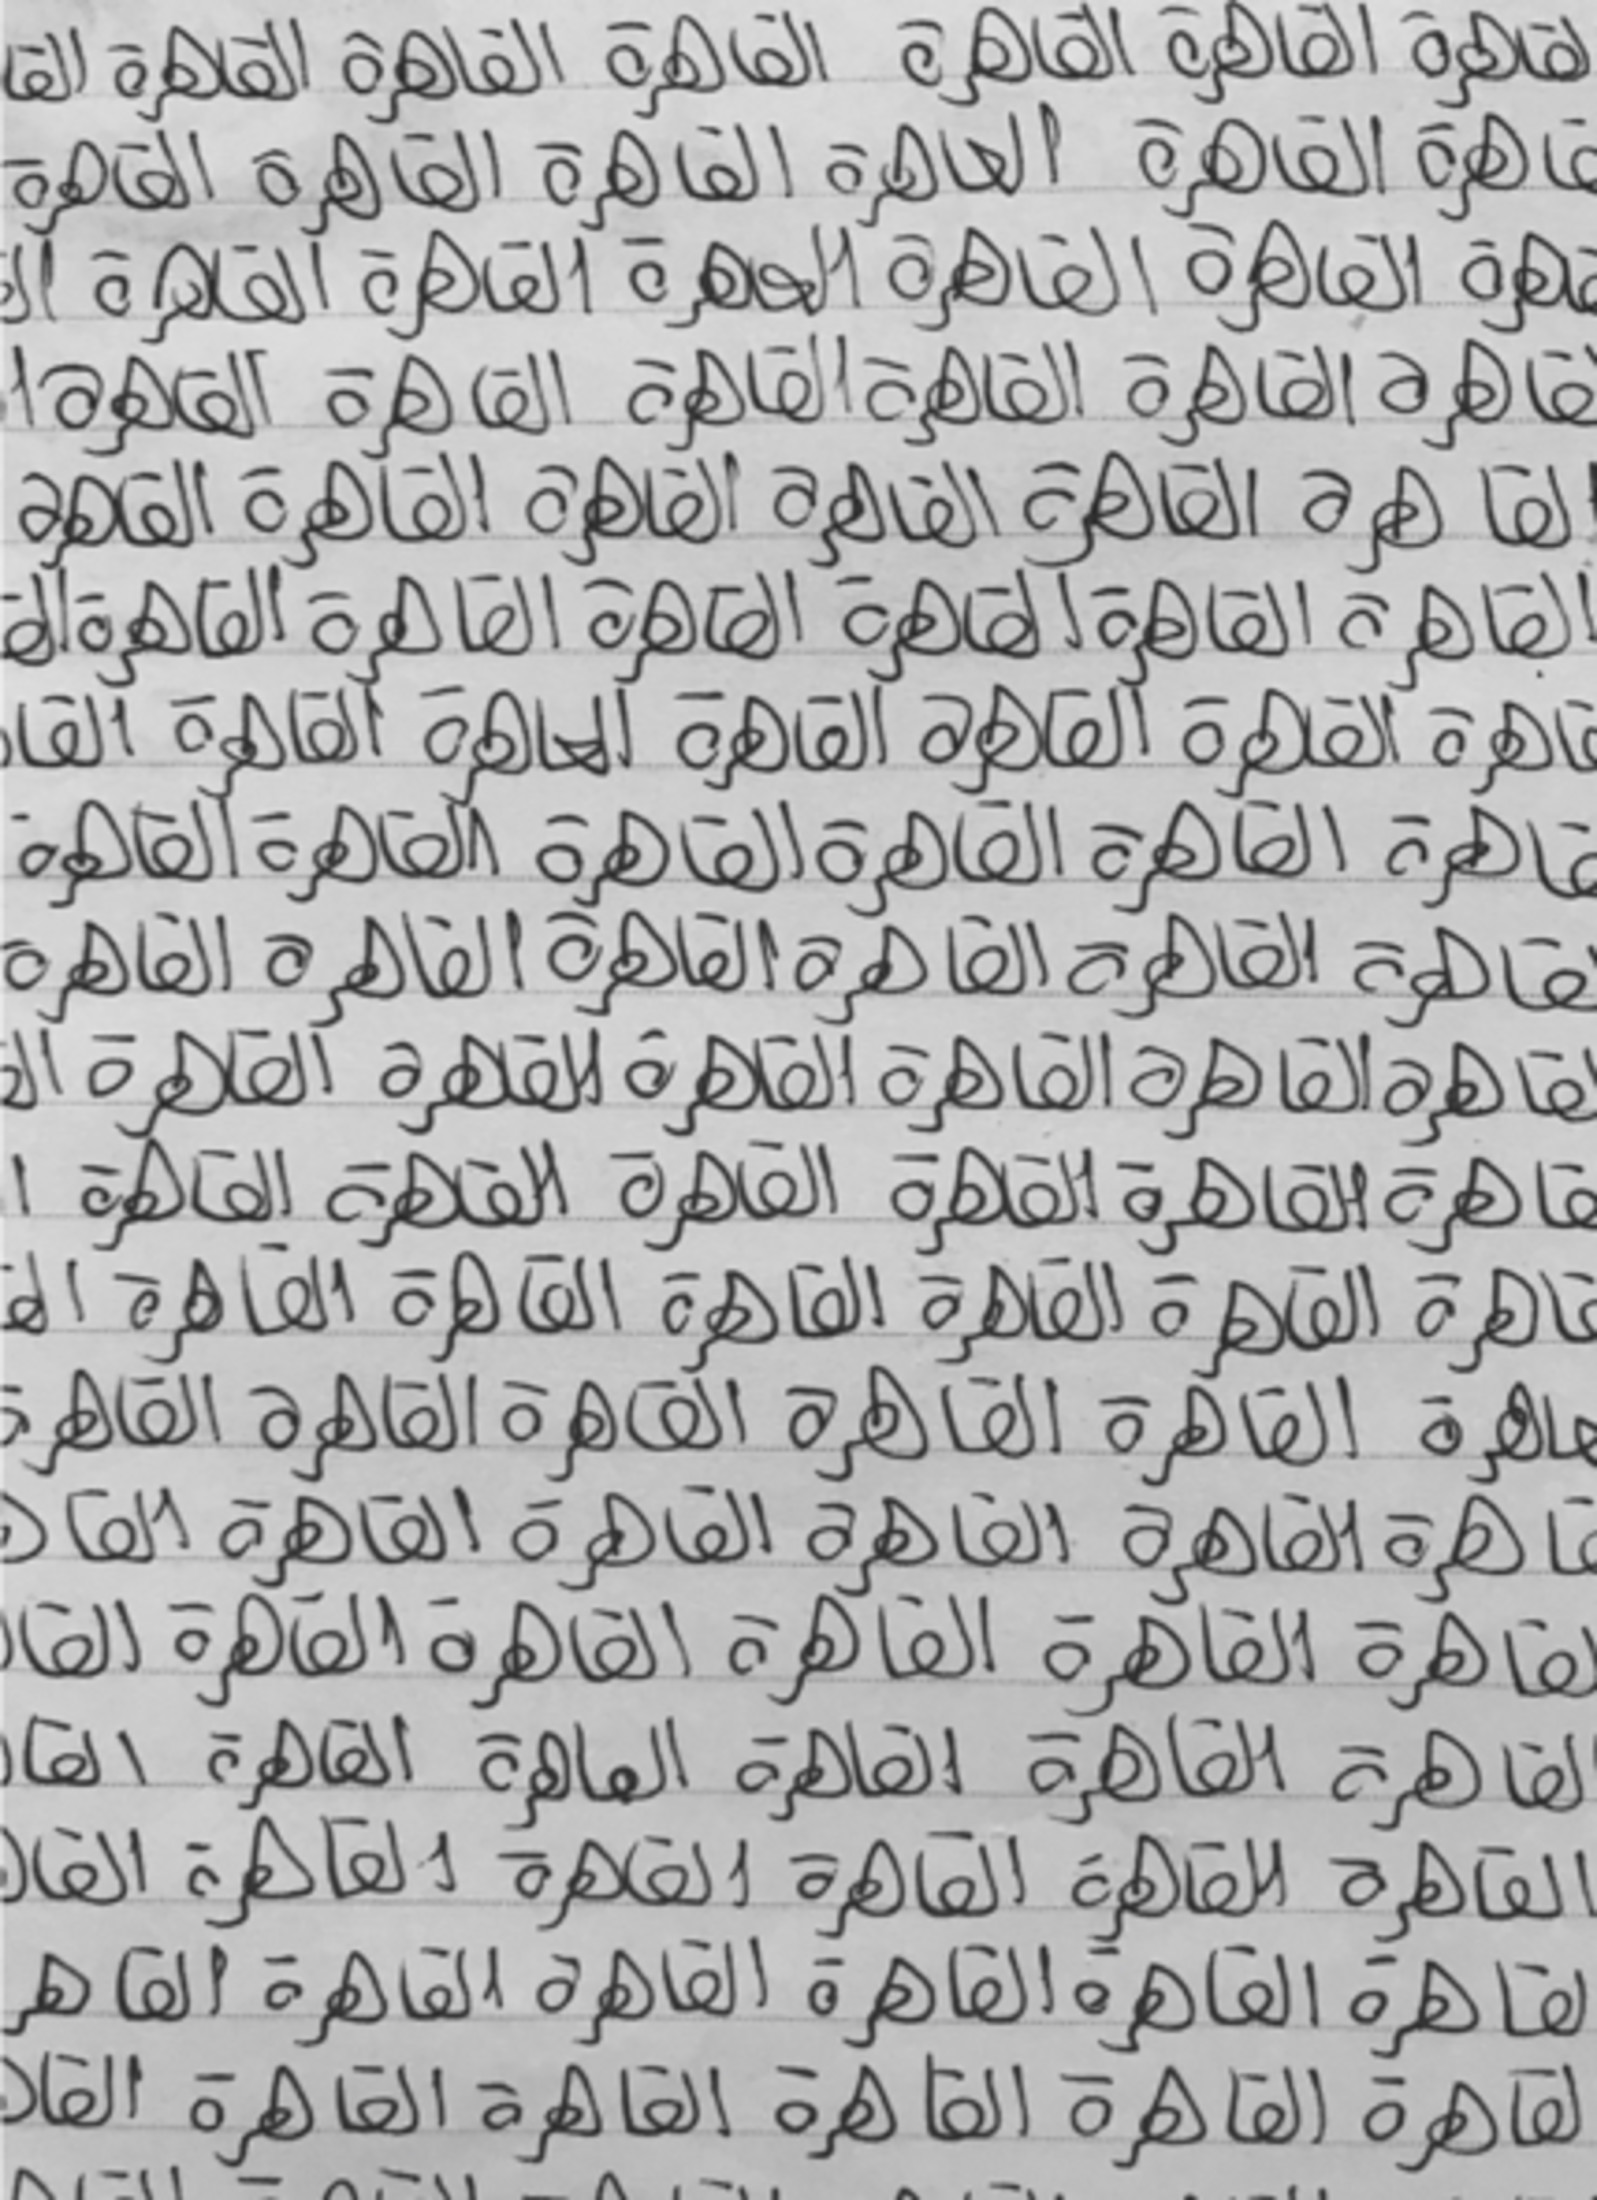 قاهرة القاهرة القاهرة القاهرة القاهرة القاهرة القا
قاهرة القاهرة القاهرة القاهرة القاهرة القاهرة
قاهرة القاهرة القاهرة القاهرة القاهرة القاهرة ال
قاهرة القاهرة القاهرة القاهرة القاهرة القاهرة ا
القاهرة القاهرة القاهرة القاهرة القاهرة القاهرة
القاهرة القاهرة القاهرة القاهرة القاهرة القاهرة الق
قاهرة القاهرة القاهرة القاهرة القاهرة القاهرة القا
قاهرة القاهرة القاهرة القاهرة القاهرة القاهرة
قاهرة القاهرة القاهرة القاهرة القاهرة القاهرة
قاهرة القاهرة القاهرة القاهرة القاهرة القاهرة ال
قاهرة القاهرة القاهرة القاهرة القاهرة القاهرة ا
قاهرة القاهرة القاهرة القاهرة القاهرة القاهرة الق
قاهرة القاهرة القاهرة القاهرة القاهرة القاهرة
قاهرة القاهرة القاهرة القاهرة القاهرة القاه
قاهرة القاهرة القاهرة القاهرة القاهرة القا
القاهرة القاهرة القاهرة القاهرة القاهرة القا
القاهرة القاهرة القاهرة القاهرة القاهرة القا
قاهرة القاهرة القاهرة القاهرة القاهرة القاهر
لقاهرة القاهرة القاهرة القاهرة القاهرة القا